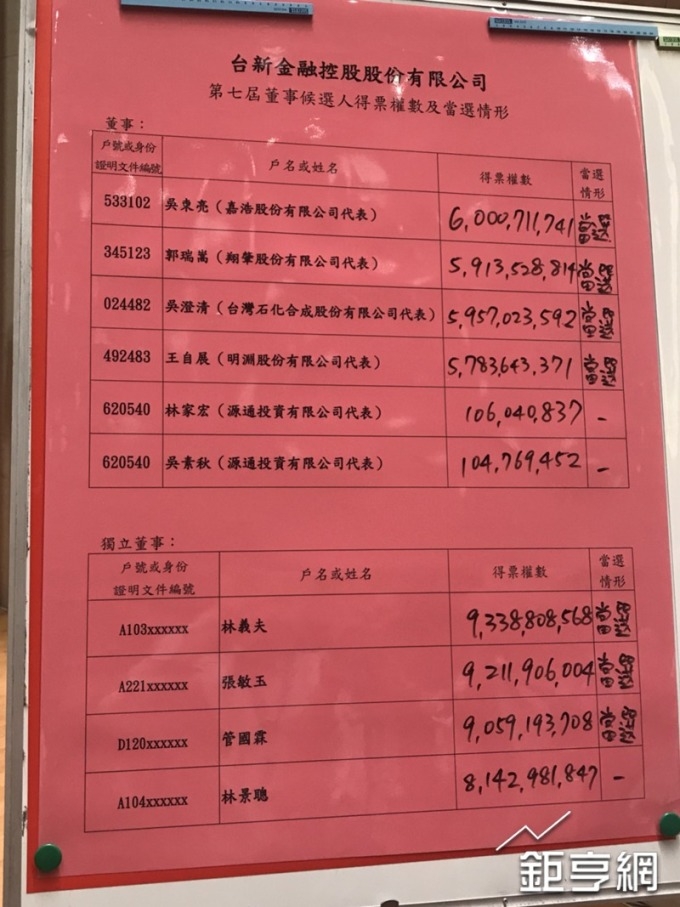 台新金融控股股份有限公司
第七屆董事候選人得票權數及當選情形
董事：
戶號或身份證明文件編號 戶名或姓名 得票權數 當選情形
533102 吳東亮（嘉浩股份有限公司代表） 6,000,711,741 當選
345123 郭瑞嵩（翔肇股份有限公司代表） 5,913,528,814 當選
024482 吳澄清（台灣石化合成股份有限公司代表） 5,957,023,592 當選
492483 王自展（明淵股份有限公司代表） 5,783,643,371 當選
620540 林家宏（源通投資有限公司代表） 106,040,837 -
620540 吳素秋（源通投資有限公司代表） 104,769,452 -
獨立董事：
戶號或身份證明文件編號 戶名或姓名 得票權數 當選情形
A103xxxxxx 林義夫 9,338,808,568 當選
A221xxxxxx 張敏玉 9,211,906,004 當選
D120xxxxxx 管國霖 9,059,193,708 當選
A104xxxxxx 林景聰 8,142,981,847 -
鉅亨網